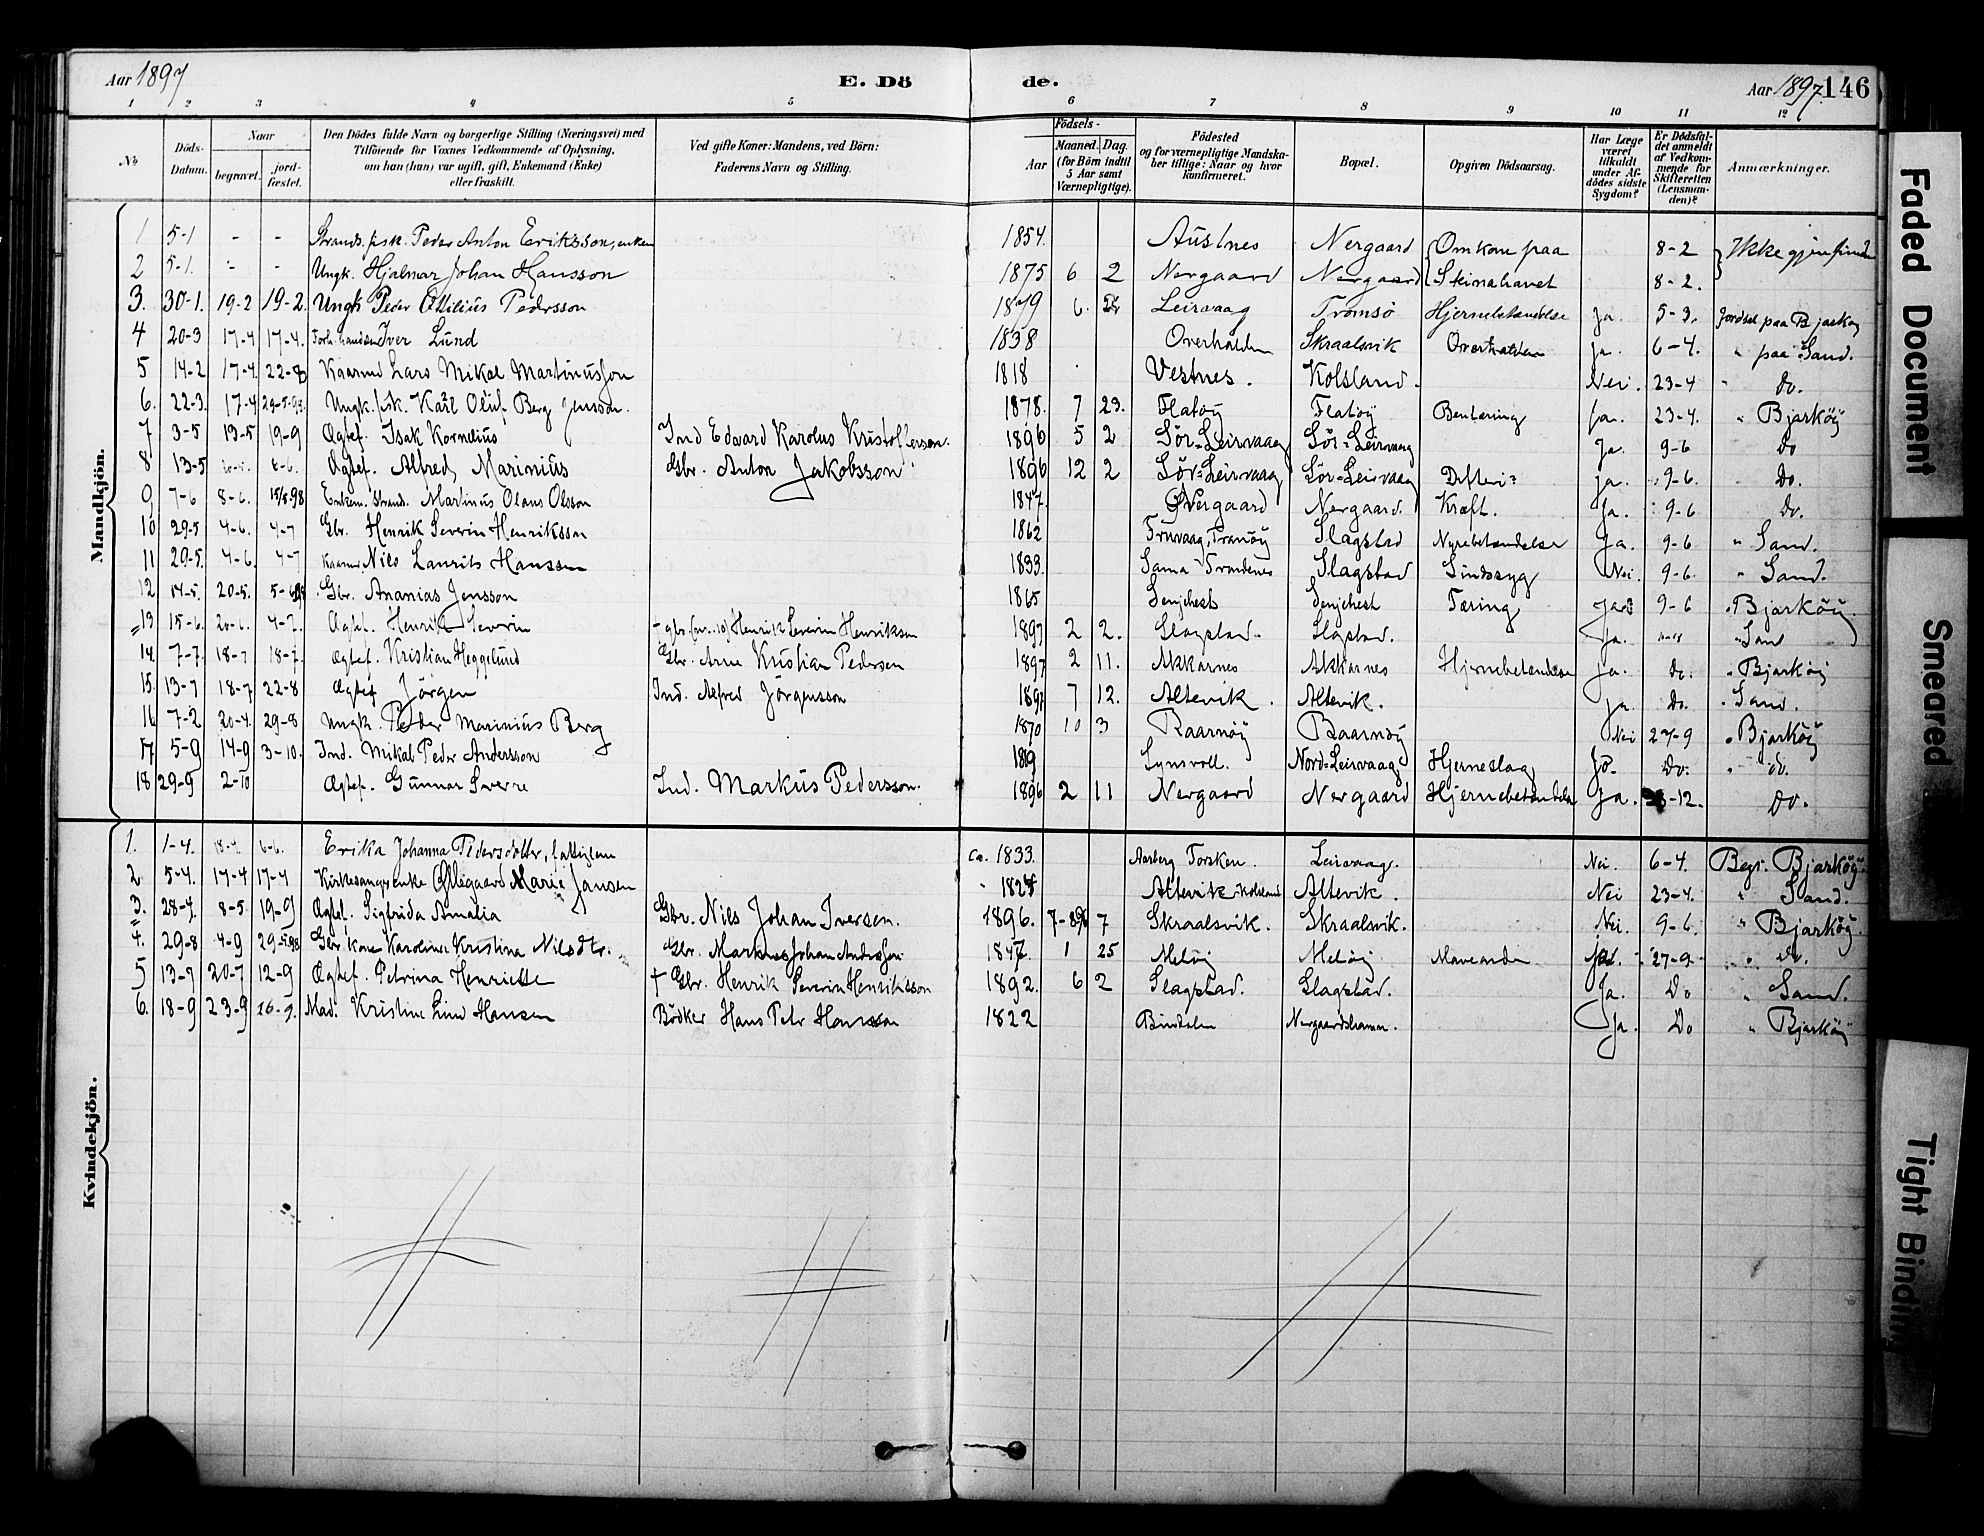 Aar 1897 E. Dö de. Aar 1897. 146
1 2 3 4 5 6 7 8 9 10 11 12
No
Döds-Datum.
Naar begravet. jord-fæstet.
Den Dödes fulde Navn og borgerlige Stilling (Næringsvei) med Tilföiende for Voxnes Vedkommende af Oplysning, om han (hun) var ugift, gift, Enkemand (Enke) eller fraskilt.
Ved gifte Koner: Mandens, ved Börn: Faderens Navn og Stilling.
Födsels- Aar Maaned. Dag. (for Börn indtil 5 Aar samt Værnepligtige).
Födested og for værnepligtige Mandska-ber tillige: Naar og hvor konfirmeret.
Bopæl.
Opgiven Dödsaarsag.
Har Læge været tilkaldt under Af-dödes sidste Sygdom?
Er Dödsfal-det anmeldt af Vedkom-mende for Skifteretten (Lensman-den)?
Anmærkninger.
Mandkjön.
1 5-1 - - Strands. fisk. Peder Anton Eriksson, 1854. Austnes Nergaard Omkom paa 8-2 Ikke
2 5-1. - - Ungk. Hjalmar Johan Hansson 1875 6 2 Nergaard Nergaard 8-2.
3. 30-1. 19-2 19-2. Ungk Peder Otilius Pedersson 1879 6. Leirvaag Tromsö Hjernebetændelse Ja. 5-3. Jordfæt paa Bjarkøy
4 20-3 17-4 17-4. Iver Lund 1838 Overhalden Skraalsvik Ja. 6-4. " paa Sand.
5 14-2 17-4. 22-8 Kaarmd Lars Mikal Martinussen 1818 Vestnes. Kolsland. Nei. 23-4 " Do.
6. 22-3. 17-4 29-5-98. Ungk. fisk. Karl Oluf Berg Jensson. 1878. 7 23. Flatöy Flatöy Bentæring Ja. 23-4. " Bjarköy
7 3-5 13-5 19-9 Ægtef. Isak Kornelius Ind Edvard Karolus Kristoffersen. 1896 5 2 Sör-Leirvaag Sör-Leirvaag Ja. 9-6 Do
8 13-5 8-6. Ægtef. Alfred Marinius Gbr. Anton Jakobsson 1896 12 2 Sör-Leirvaag Sör-Leirvaag Difteri? Ja. 9-6. Do.
9 7-6 8-6. 15/5.98 Enkem. Strand. Martinus Olaus Olsson 1847. Øvergaard Nergaard. Kræft. Ja. 9-6 Do.
10 29-5 4-6. 4-7 Gbr. Henrik Severin Henriksson 1862 Truvaag, Tranöy Slagstad Nyrebetændelse Ja. 9-6 " Sand.
11 29-5. 4-6. 4-7 Kaarmd Nils Laurits Hanssen 1833. Sama Trondenes Slagstad Sindssyg Nei. 9-6. " Sand.
12 14-5. 20-5. Gbr. Ananias Jensson 1865 Senjehest Senjehest Tæring Ja 9-6 " Bjarköy.
13 15-6. 20-6. 4-7. Ægtef. Henrik Severin † gbr. (nr. 10) Henrik Severin Henriksen 1897 2 2. Slagstad. Slagstad. Ja. " Sand
14. 7-7. 18-7 18-7. Ægtef. Kristian Heggelund Gbr. Arne Kristian Pedersen 1897 2 11. Akkarnes Akkarnes Hjernebetændelse Ja. Do. " Bjarköy
15. 13-7 18-7 22-8 Ægtef Jörgen Ind. Alfred Jörgensson 1897 7 12. Altevik. Altevik. Ja. Do. " Sand.
16 7-2 20-4. 29-8 Ungk. Peder Marinius Berg 1870 10 3 Raarnöy Raarnöy Nei 27-9 " Bjarköy
17 5-9 14-9 3-10. Ind. Mikal Peder Andersson 1819 Lynsvoll. Nord-Leirvaag Hjerneslag Ja. Do. " do.
18 29-9 2-10 Ægtef. Gunnar Sverre Ind. Markus Pedersson. 1896 2 11 Nergaard Nergaard Hjernebetændelse Ja. -12. Do.
Kvindekjön.
1. 1-4. 18-4. 6-6. Erika Johanna Pedersdotter, fattiglem ca. 1833. Torsken. Leirvaag. Nei. 6-4. Begr. Bjarköy.
2 5-4. 17-4 17-4 Kirkesangerenke Ollegaard Marie Jansen Altevik, Kolsland Altevik. Nei 23-4. " Sand.
3. 28-4. 8-5 19-9 Ægtef. Sigfrida Amalia Gbr. Nils Johan Iversen. 1896. 7 Skraalsvik. Skraalsvik. Nei. 9-6. " Bjarköy.
4. 29-8 4-9 29-5.98 Gbr. kone Karoline Kristina Nilsdtr. Gbr. Markus Johan Anderssen 1847. 1 25 Melöy Melöy Ja. 27-9. " Do.
5 13-7 20-7 12-9 Ægtef. Petrina Henriette † Gbr. Henrik Severin Henriksson 1892. 6 2 Slagstad. Slagstad. Ja. Do " Sand.
6. 18-9 23-9 26-9. Mad. Kristine Lind Hansen Bödker Hans Petr Hansson 1822 Bindalen Nergaardshamn. Ja. Do " Bjarköy
Faded Document
Smeared
Tight Binding